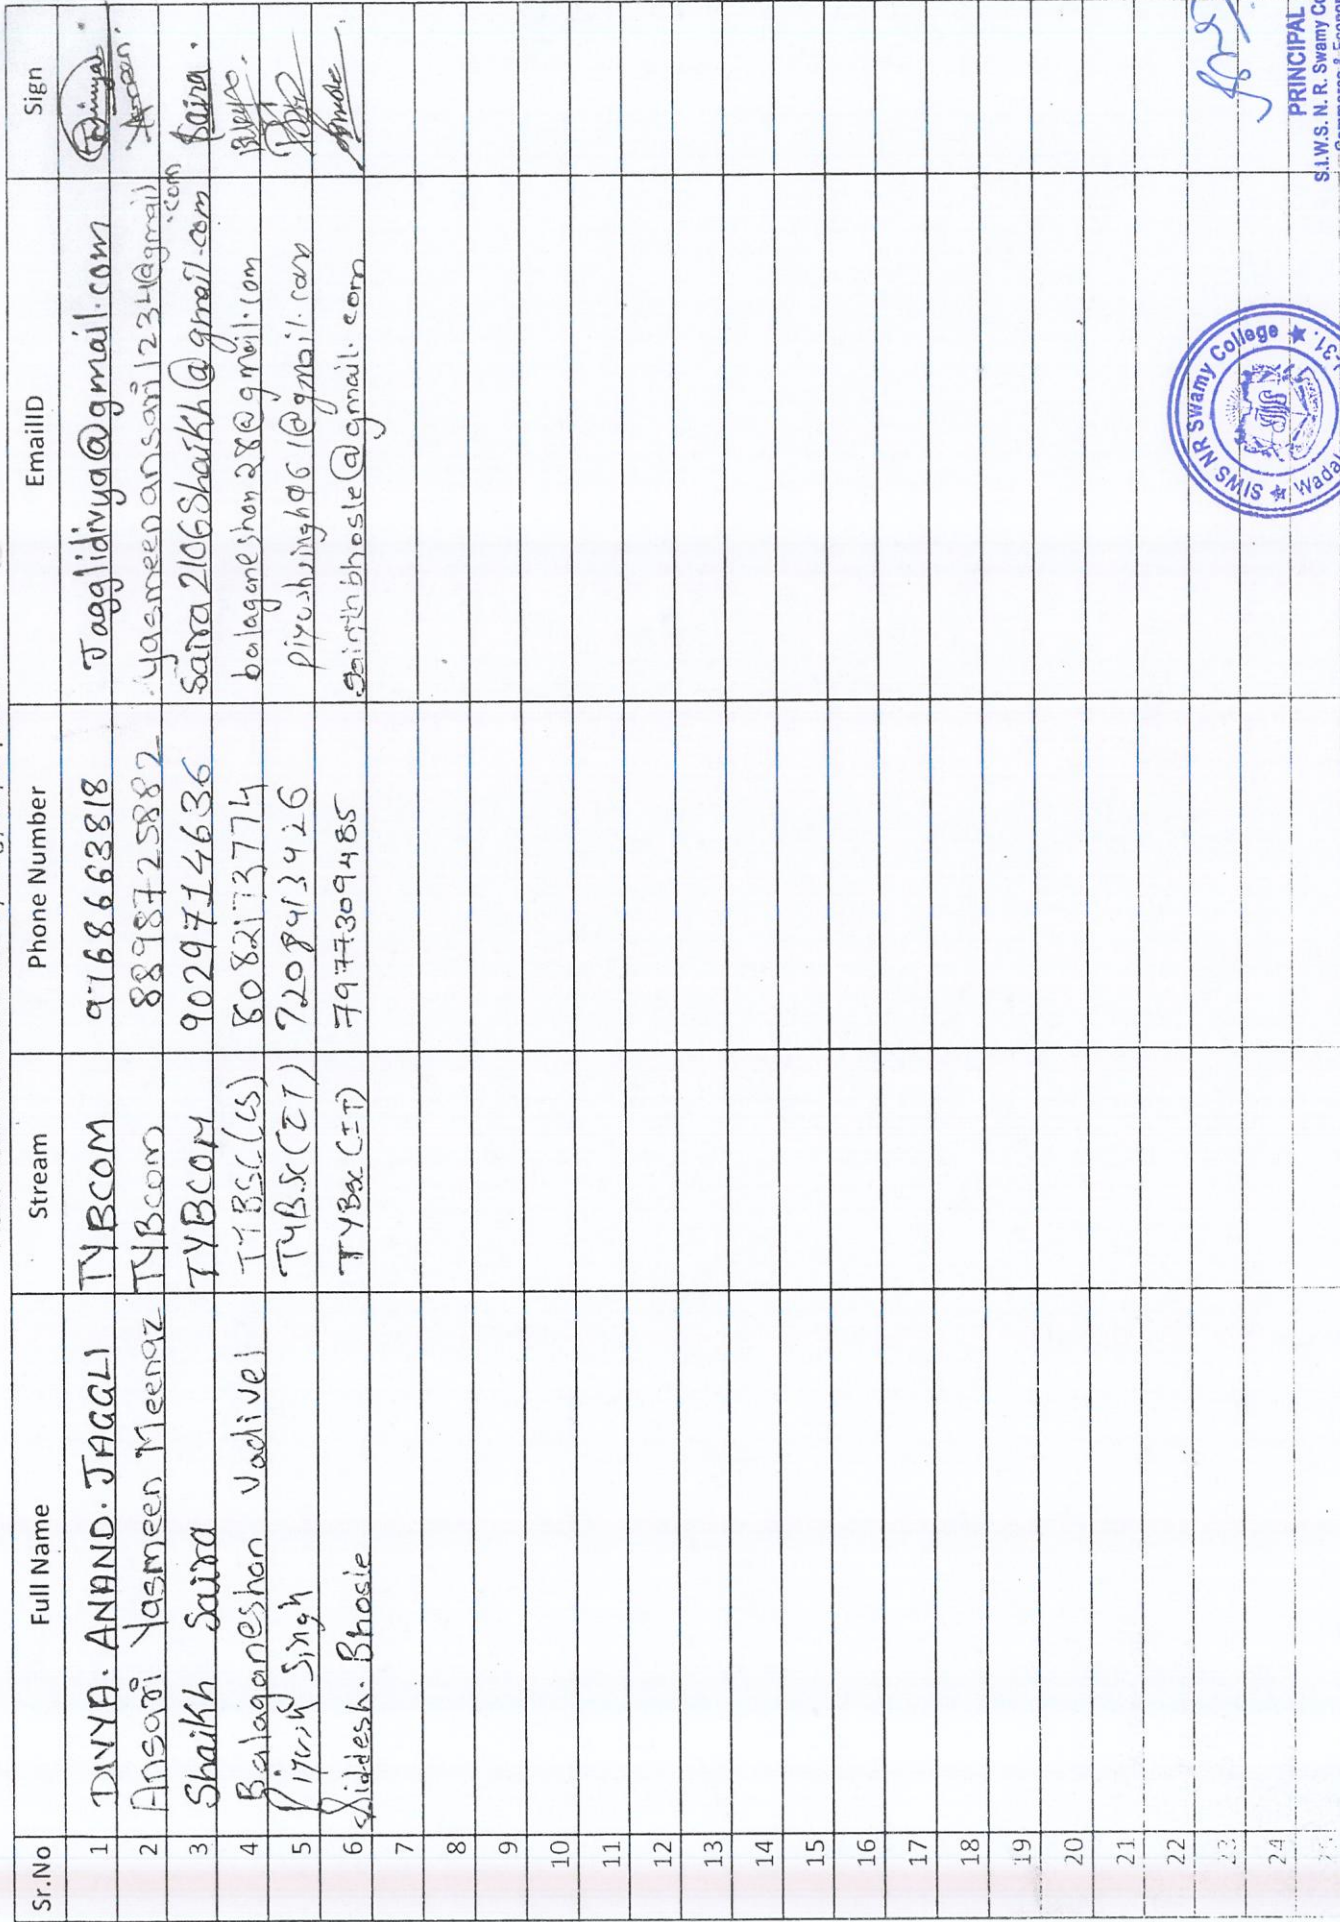 Sr.No Full Name Stream Phone Number EmailID Sign
1 DIVYA. ANAND. JAGGLI TYBCOM 9768663818 Jagglidivya@gmail.com
2 Ansari Yasmeen Meenaz TYBcom 8898725882 yasmeenansari1234@gmail.com
3 Shaikh Saira TYBCOM 9029714636 Saira2106Shaikh@gmail.com Saira.
4 Balaganeshan Vadivel TYBSC(CS) 8082173774 balaganeshan28@gmail.com
5 Piyush Singh TYB.SC(IT) 7208413426 piyushsingh061@gmail.com
6 Siddesh. Bhosle TYBsc(IT) 7977309485 @gmail.com
7
8
9
10
11
12
13
14
15
16
17
18
19
20
21
22
23
24
SIWS NR Swamy College ★
PRINCIPAL
S.I.W.S. N. R. Swamy